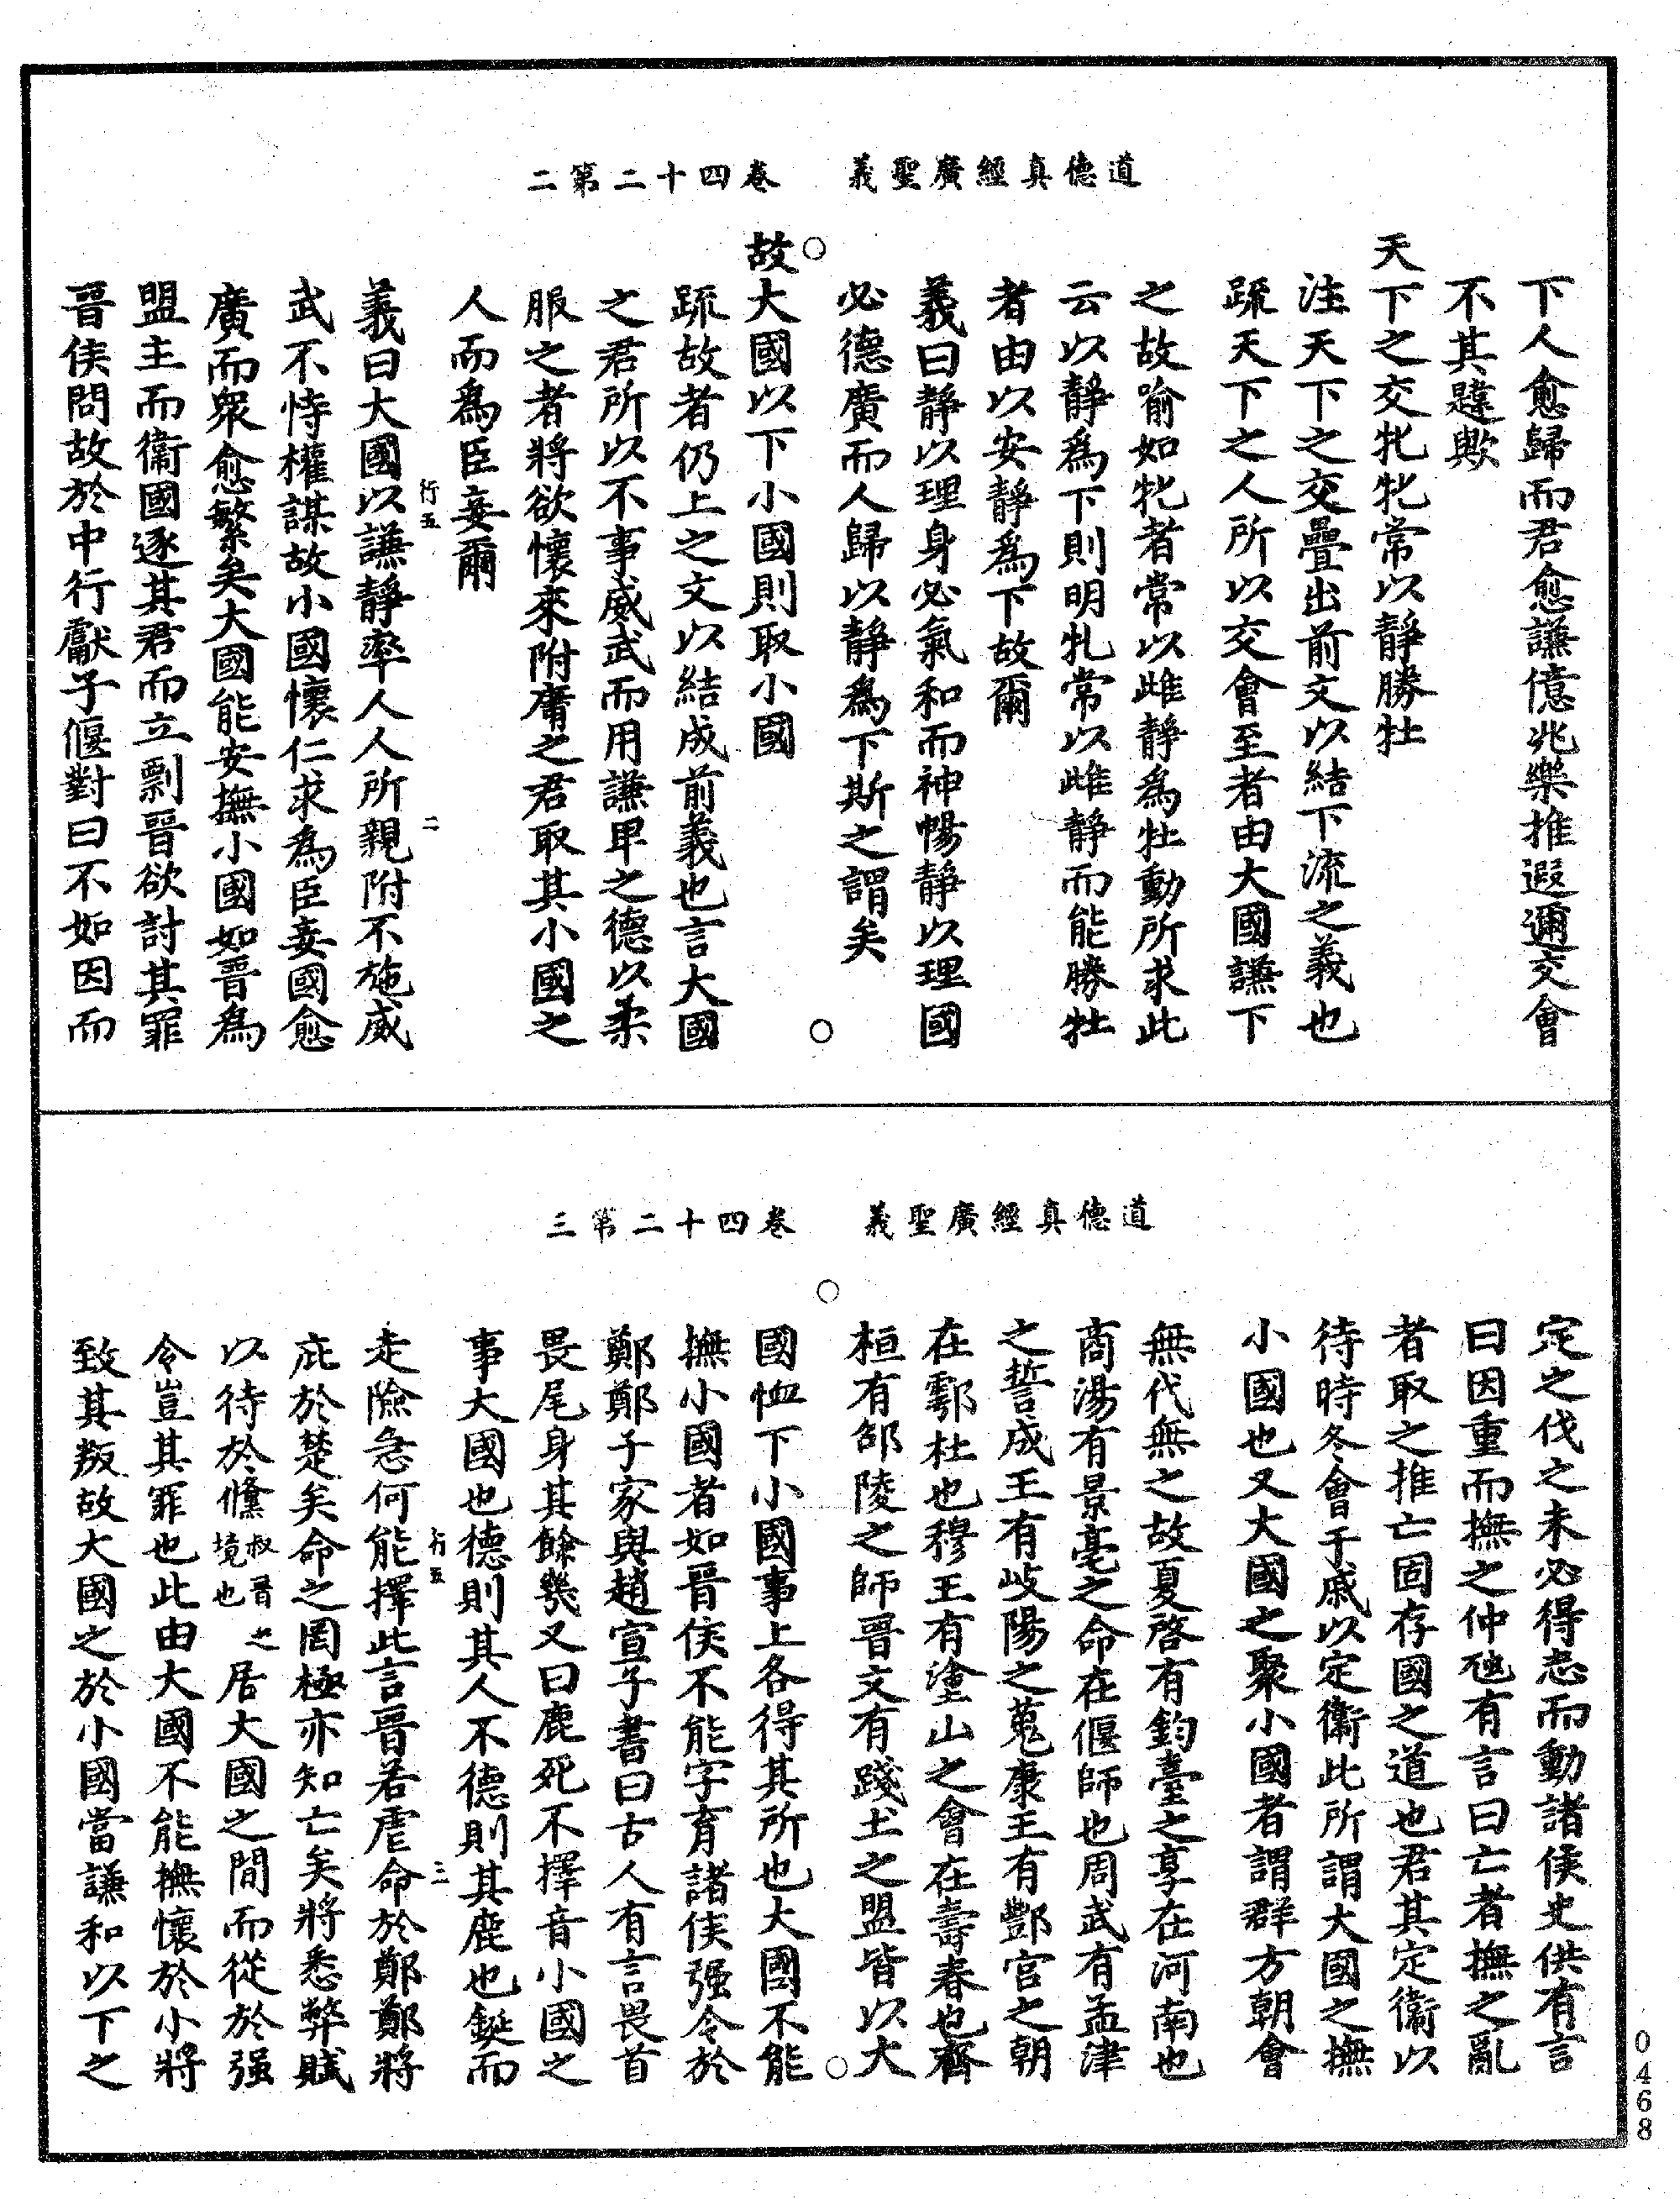 道德真經廣聖義　卷四十二第二
下人愈歸而君愈謙億兆樂推遐邇交會
不其韙歟
天下之交牝牝常以靜勝牡
注天下之交疊出前文以結下流之義也
疏天下之人所以交會至者由大國謙下
之故喻如牝者常以雌靜爲牡動所求此
云以靜爲下則明牝常以雌靜而能勝牡
者由以安靜爲下故爾
義曰靜以理身必氣和而神暢靜以理國
必德廣而人歸以靜爲下斯之謂矣
故大國以下小國則取小國
疏故者仍上之文以結成前義也言大國
之君所以不事威武而用謙卑之德以柔
服之者將欲懷來附庸之君取其小國之
人而爲臣妾爾
行五　二
義曰大國以謙靜率人人所親附不施威
武不恃權謀故小國懷仁求爲臣妾國愈
廣而衆愈繁矣大國能安撫小國如晉爲
盟主而衞國逐其君而立剽晉欲討其罪
晉侯問故於中行獻子偃對曰不如因而
道德真經廣聖義　卷四十二第三
定之伐之未必得志而動諸侯史佚有言
曰因重而撫之仲虺有言曰亡者撫之亂
者取之推亡固存國之道也君其定衞以
待時冬會于戚以定衞此所謂大國之撫
小國也又大國之聚小國者謂群方朝會
無代無之故夏啓有鈞臺之享在河南也
商湯有景亳之命在偃師也周武有孟津
之誓成王有岐陽之蒐康王有酆宮之朝
在鄠杜也穆王有塗山之會在壽春也齊
桓有邵陵之師晉文有踐土之盟皆以大
國恤下小國事上各得其所也大國不能
撫小國者如晉侯不能字育諸侯强令於
鄭鄭子家與趙宣子書曰古人有言畏首
畏尾身其餘幾又曰鹿死不擇音小國之
事大國也德則其人不德則其鹿也鋌而
行五　三
走險急何能擇此言晉若虐命於鄭鄭將
庇於楚矣命之罔極亦知亡矣將悉弊賦
以待於儵叔晉之境也居大國之間而從於强
令豈其罪也此由大國不能撫懷於小將
致其叛故大國之於小國當謙和以下之
0468